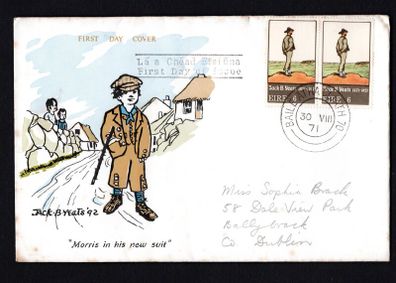 FIRST DAY COVER
Lá a Chéad Eisiúna
First Day of Issue
Jack B Yeats 1871-1957
EIRE 6
Jack B Yeats 1871-1957
EIRE 6
30 VIII
71
Jack B Yeats '92
"Morris in his new suit"
Miss Sophia Brack
58 Dale View Park
Ballybrack
Co Dublin